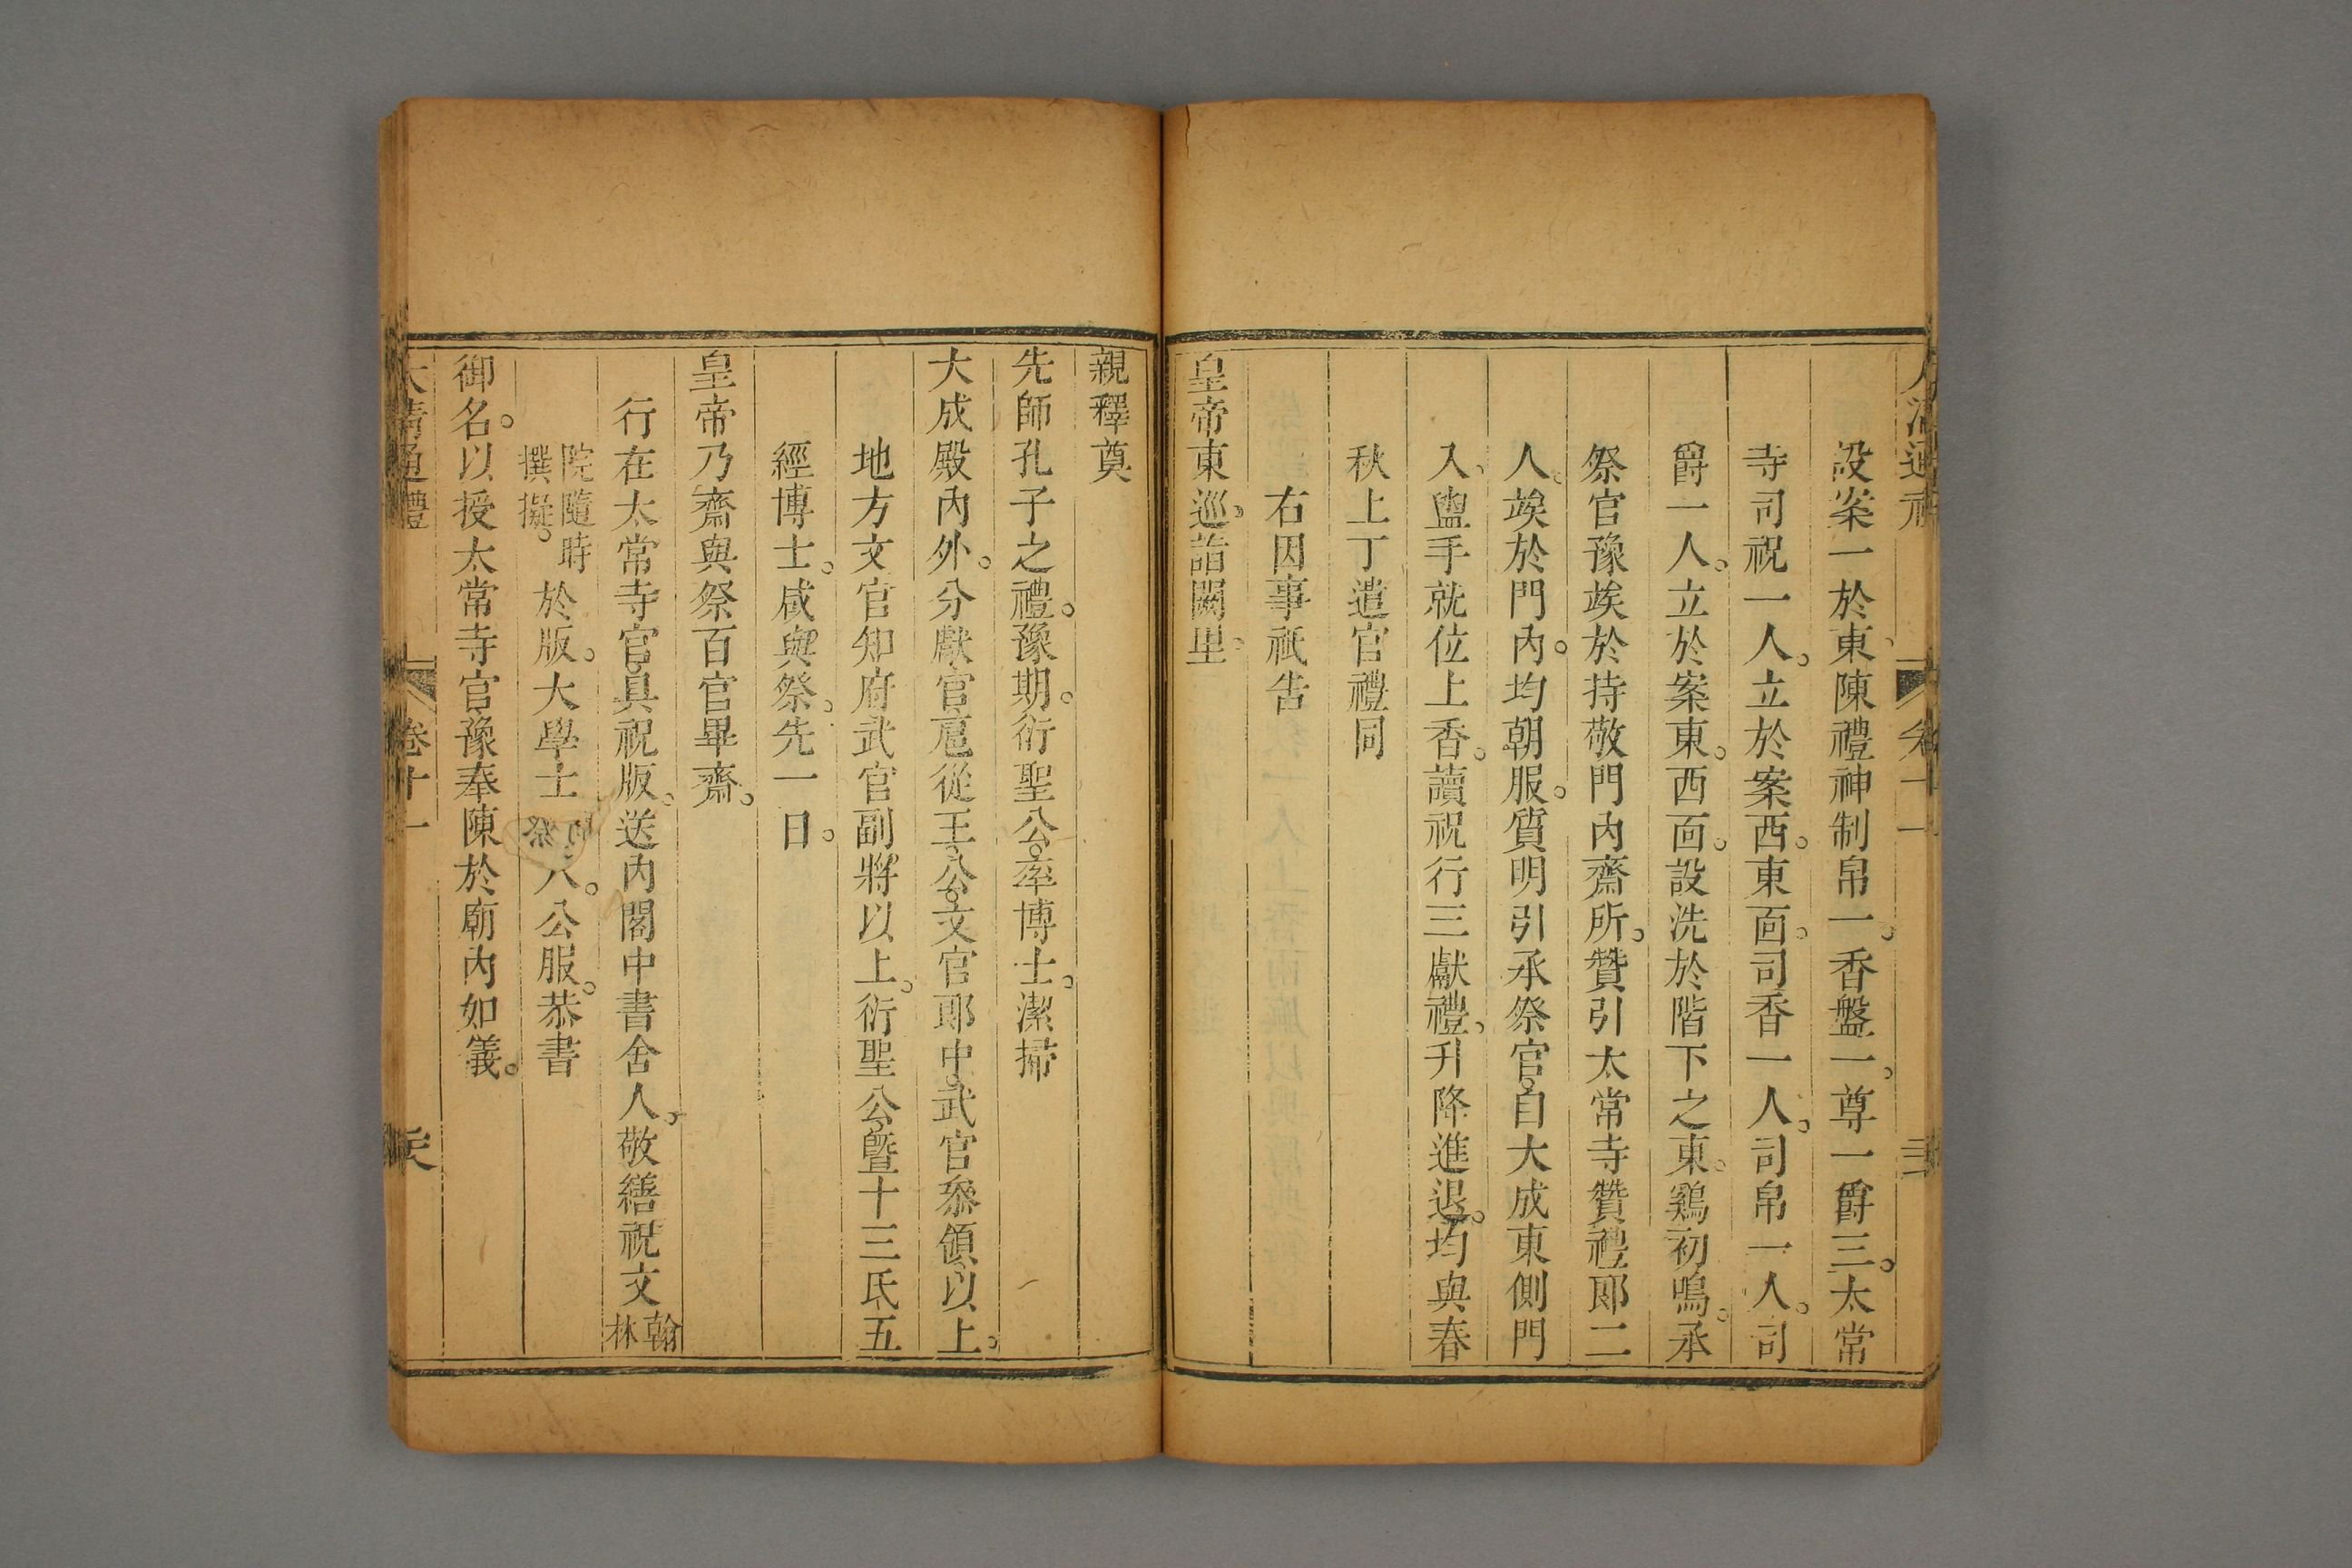 設案一於東陳禮神制帛一。香盤一。尊一爵三。太常
寺司祝一人。立於案西。東面。司香一人。司帛一人。司
爵一人。立於案東。西面。設洗於階下之東。鷄初鳴。承
祭官豫竢於持敬門內齋所。贊引太常寺贊禮郞二
人。竢於門內。均朝服。質明引承祭官。自大成東側門
入。盥手就位上香。讀祝行三獻禮。升降進退。均與春
秋上丁遣官禮同
右因事祇告
皇帝東巡。詣闕里。
親釋奠
先師孔子之禮。豫期。衍聖公。率博士。潔掃
大成殿內外。分獻官扈從王公。文官郞中。武官叅領以上。
地方文官知府武官副將以上。衍聖公。曁十三氏五
經博士。咸與祭。先一日。
皇帝乃齋與祭百官畢齋。
行在太常寺官。具祝版。送內閣中書舍人。敬繕祝文翰林
院隨時撰擬。於版。大學士祭人。公服。恭書
御名。以授太常寺官豫奉陳於廟內如儀。
大淸通禮 卷十一